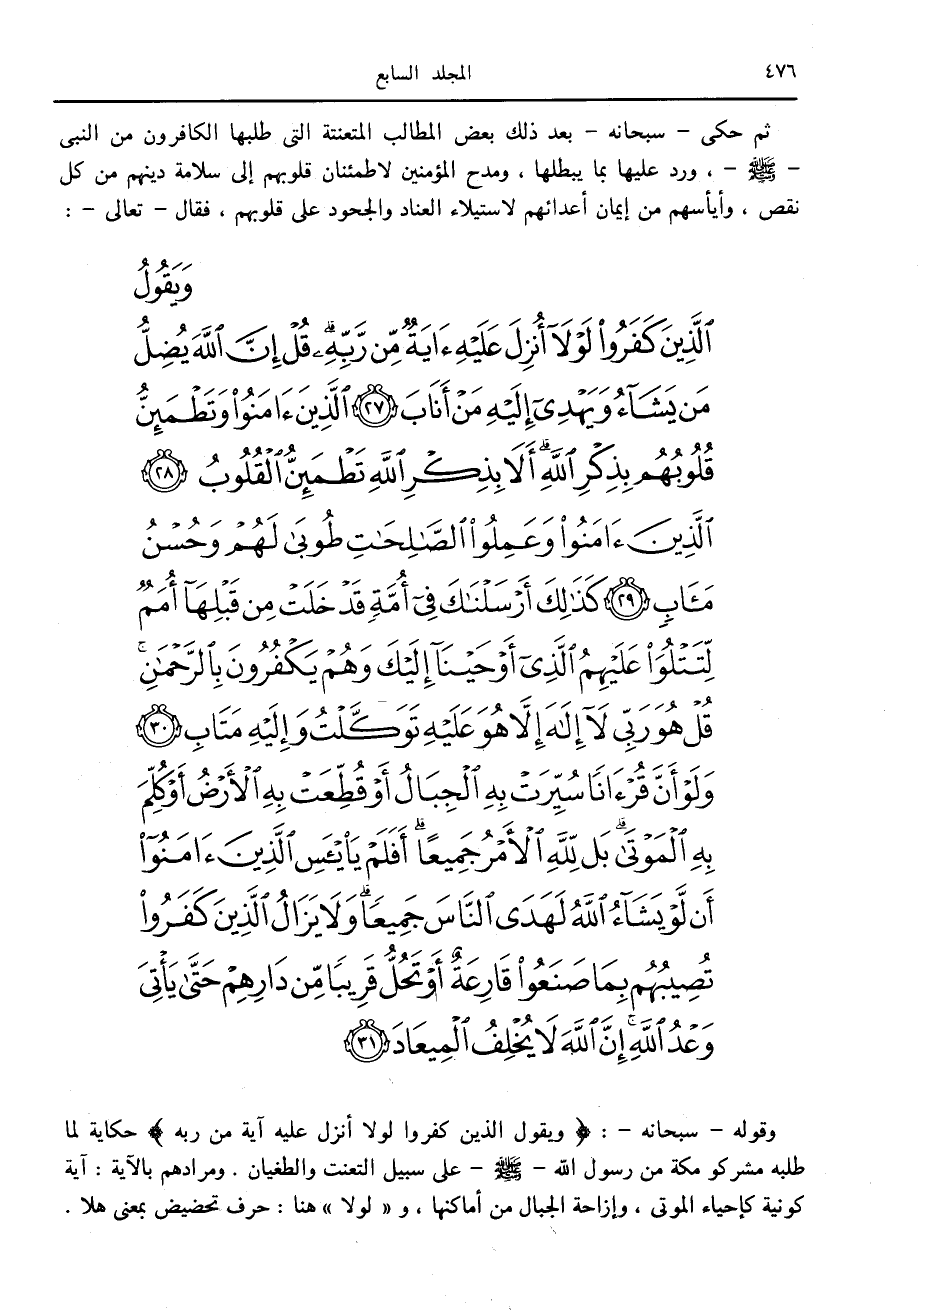 ٤٧٦ المجلد السابع
ثم حكى – سبحانه – بعد ذلك بعض المطالب المتعنتة التى طلبها الكافرون من النبى
– ﷺ – ، ورد عليها بما يبطلها ، ومدح المؤمنين لاطمئنان قلوبهم إلى سلامة دينهم من كل
نقص ، وأيأسهم من إيمان أعدائهم لاستيلاء العناد والجحود على قلوبهم ، فقال – تعالى – :
وَيَقُولُ
ٱلَّذِينَ كَفَرُوا۟ لَوْلَآ أُنزِلَ عَلَيْهِ ءَايَةٌ مِّن رَّبِّهِۦۗ قُلْ إِنَّ ٱللَّهَ يُضِلُّ
مَن يَشَآءُ وَيَهْدِىٓ إِلَيْهِ مَنْ أَنَابَ ﴿٢٧﴾ ٱلَّذِينَ ءَامَنُوا۟ وَتَطْمَئِنُّ
قُلُوبُهُم بِذِكْرِ ٱللَّهِۗ أَلَا بِذِكْرِ ٱللَّهِ تَطْمَئِنُّ ٱلْقُلُوبُ ﴿٢٨﴾
ٱلَّذِينَ ءَامَنُوا۟ وَعَمِلُوا۟ ٱلصَّٰلِحَٰتِ طُوبَىٰ لَهُمْ وَحُسْنُ
مَـَٔابٍ ﴿٢٩﴾ كَذَٰلِكَ أَرْسَلْنَٰكَ فِىٓ أُمَّةٍ قَدْ خَلَتْ مِن قَبْلِهَآ أُمَمٌ
لِّتَتْلُوَا۟ عَلَيْهِمُ ٱلَّذِىٓ أَوْحَيْنَآ إِلَيْكَ وَهُمْ يَكْفُرُونَ بِٱلرَّحْمَٰنِۚ
قُلْ هُوَ رَبِّى لَآ إِلَٰهَ إِلَّا هُوَ عَلَيْهِ تَوَكَّلْتُ وَإِلَيْهِ مَتَابِ ﴿٣٠﴾
وَلَوْ أَنَّ قُرْءَانًا سُيِّرَتْ بِهِ ٱلْجِبَالُ أَوْ قُطِّعَتْ بِهِ ٱلْأَرْضُ أَوْ كُلِّمَ
بِهِ ٱلْمَوْتَىٰۗ بَل لِّلَّهِ ٱلْأَمْرُ جَمِيعًاۗ أَفَلَمْ يَا۟يْـَٔسِ ٱلَّذِينَ ءَامَنُوٓا۟
أَن لَّوْ يَشَآءُ ٱللَّهُ لَهَدَى ٱلنَّاسَ جَمِيعًاۗ وَلَا يَزَالُ ٱلَّذِينَ كَفَرُوا۟
تُصِيبُهُم بِمَا صَنَعُوا۟ قَارِعَةٌ أَوْ تَحُلُّ قَرِيبًا مِّن دَارِهِمْ حَتَّىٰ يَأْتِىَ
وَعْدُ ٱللَّهِۚ إِنَّ ٱللَّهَ لَا يُخْلِفُ ٱلْمِيعَادَ ﴿٣١﴾
وقوله – سبحانه – : ﴿ ويقول الذين كفروا لولا أنزل عليه آية من ربه ﴾ حكاية لما
طلبه مشركو مكة من رسول الله – ﷺ – على سبيل التعنت والطغيان . ومرادهم بالآية : آية
كونية كإحياء الموتى ، وإزاحة الجبال من أماكنها ، و « لولا » هنا : حرف تحضيض بمعنى هلا .